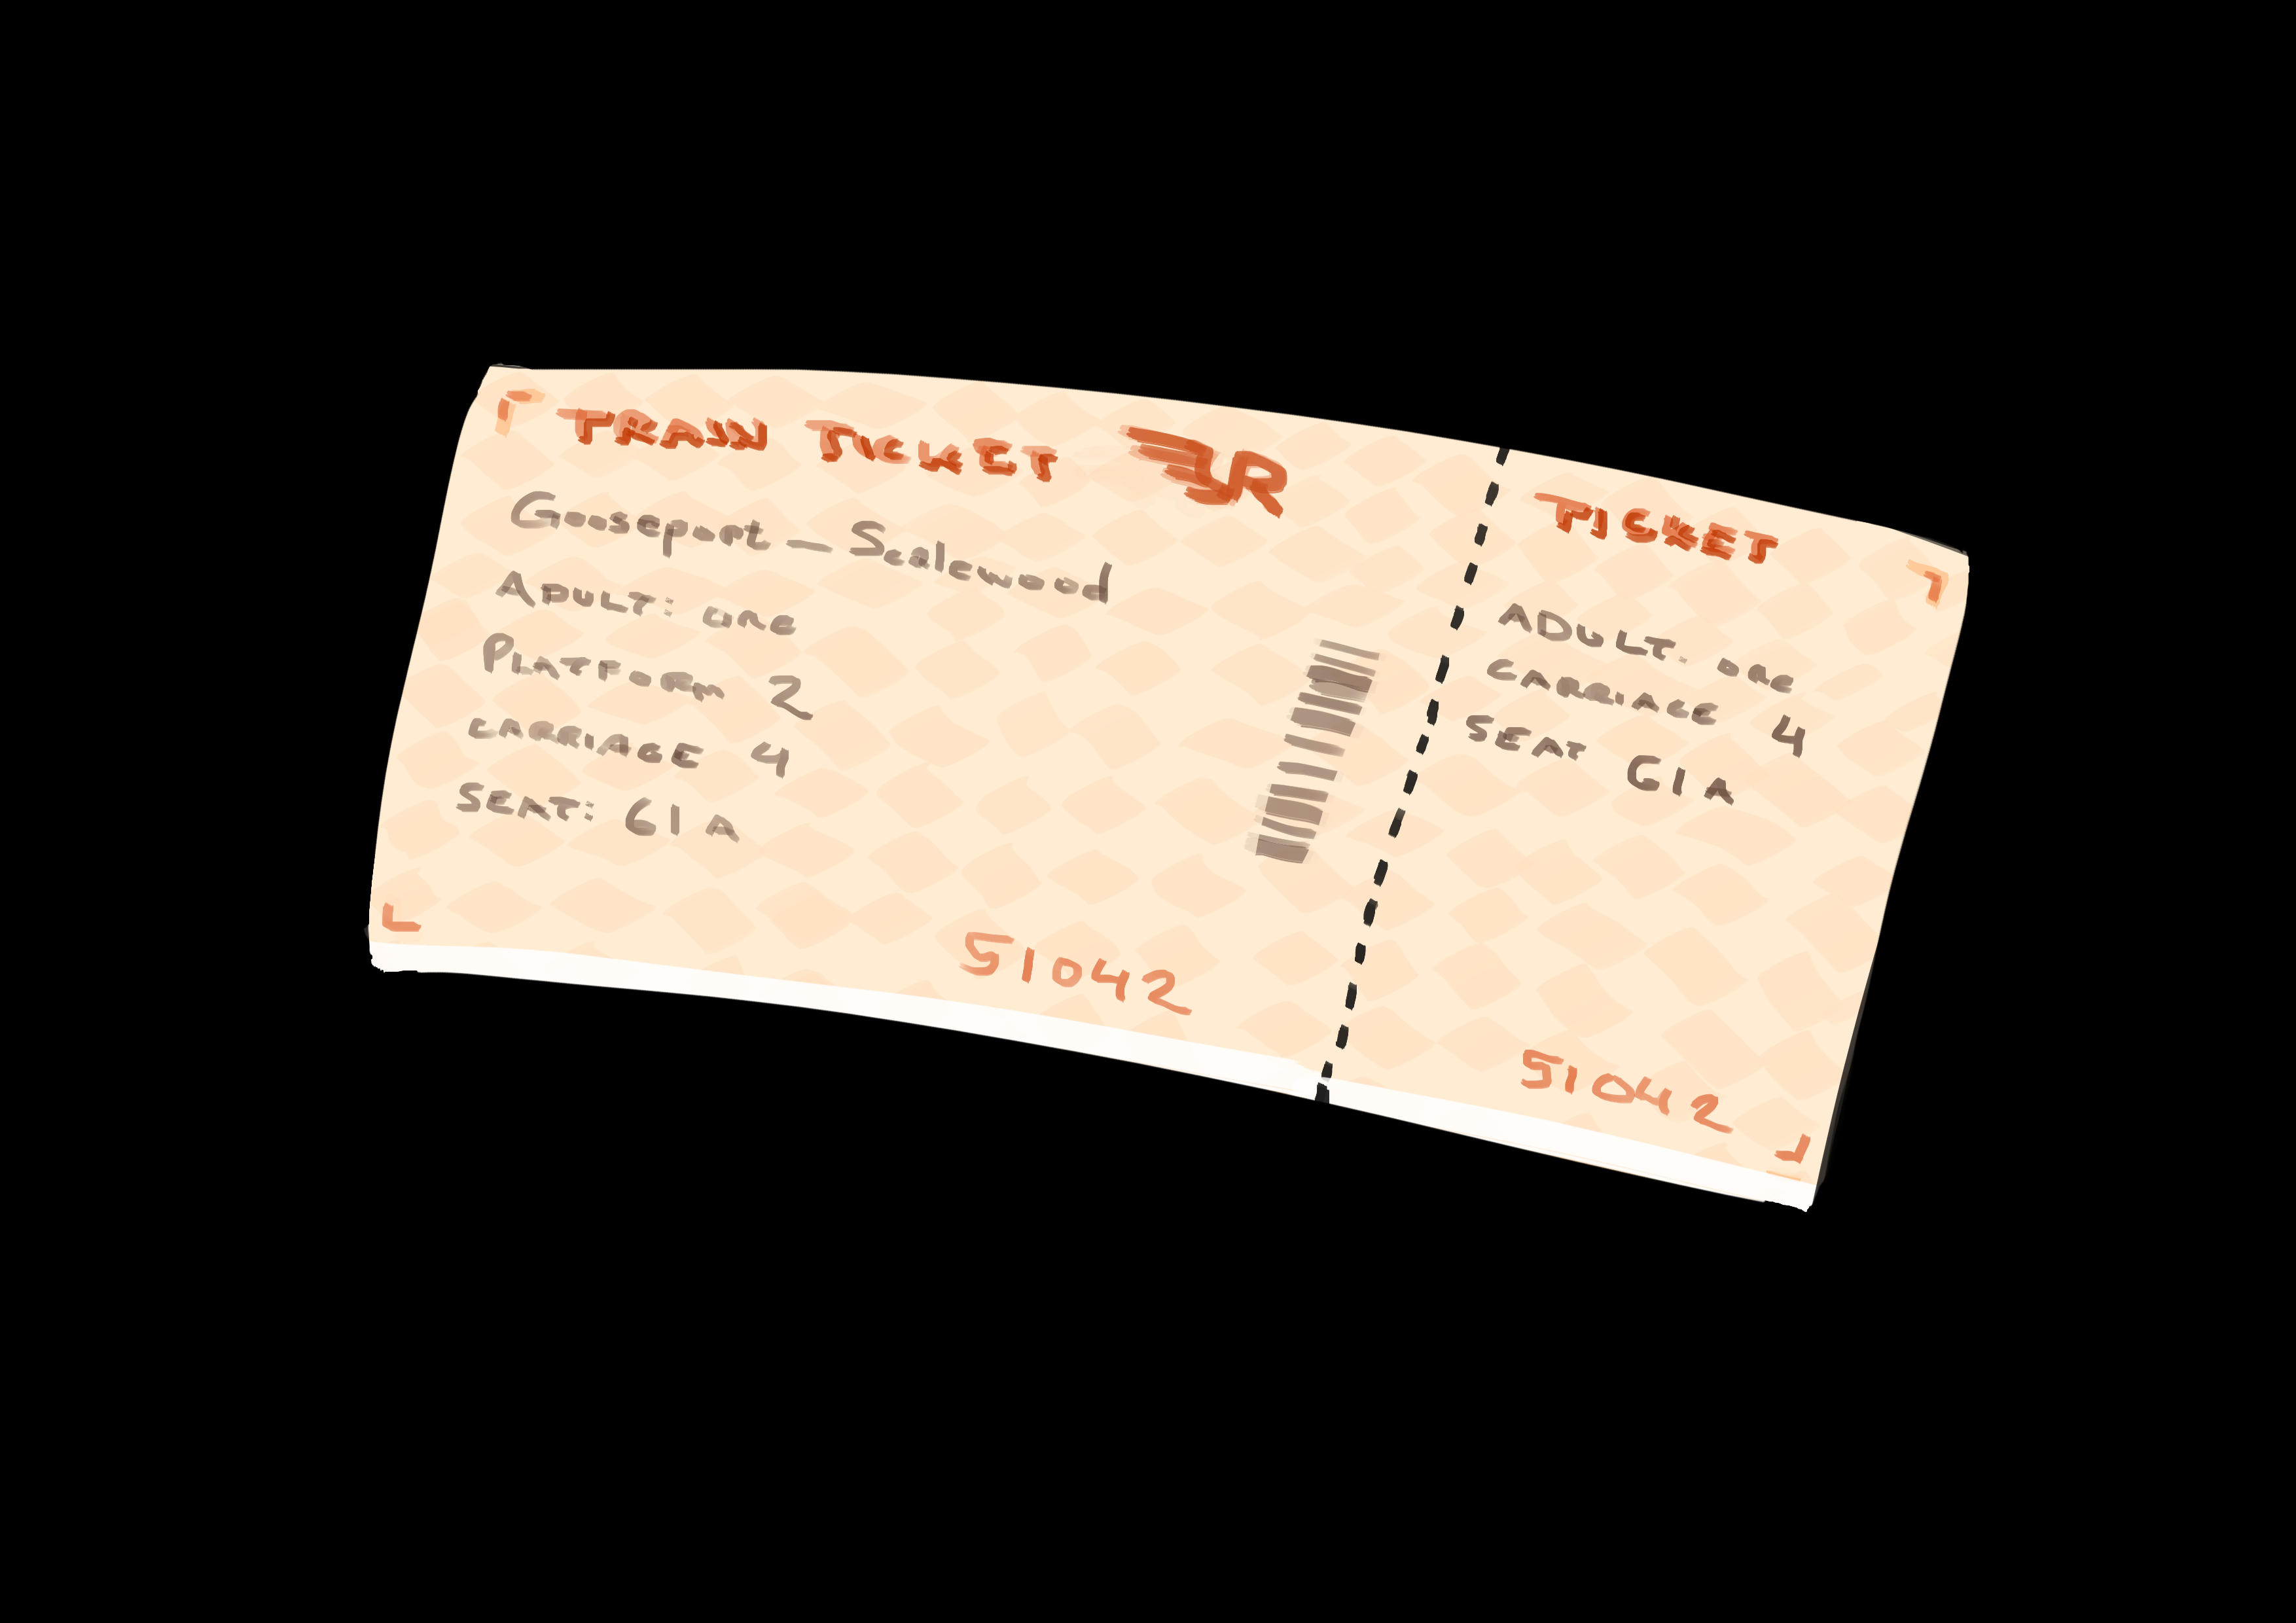 TRAIN TICKET R
Gooseport — Scalewood
ADULT: one
PLATFORM 2
CARRIAGE 4
SEAT: 61A
51042
TICKET
ADULT: one
CARRIAGE 4
SEAT 61A
51042